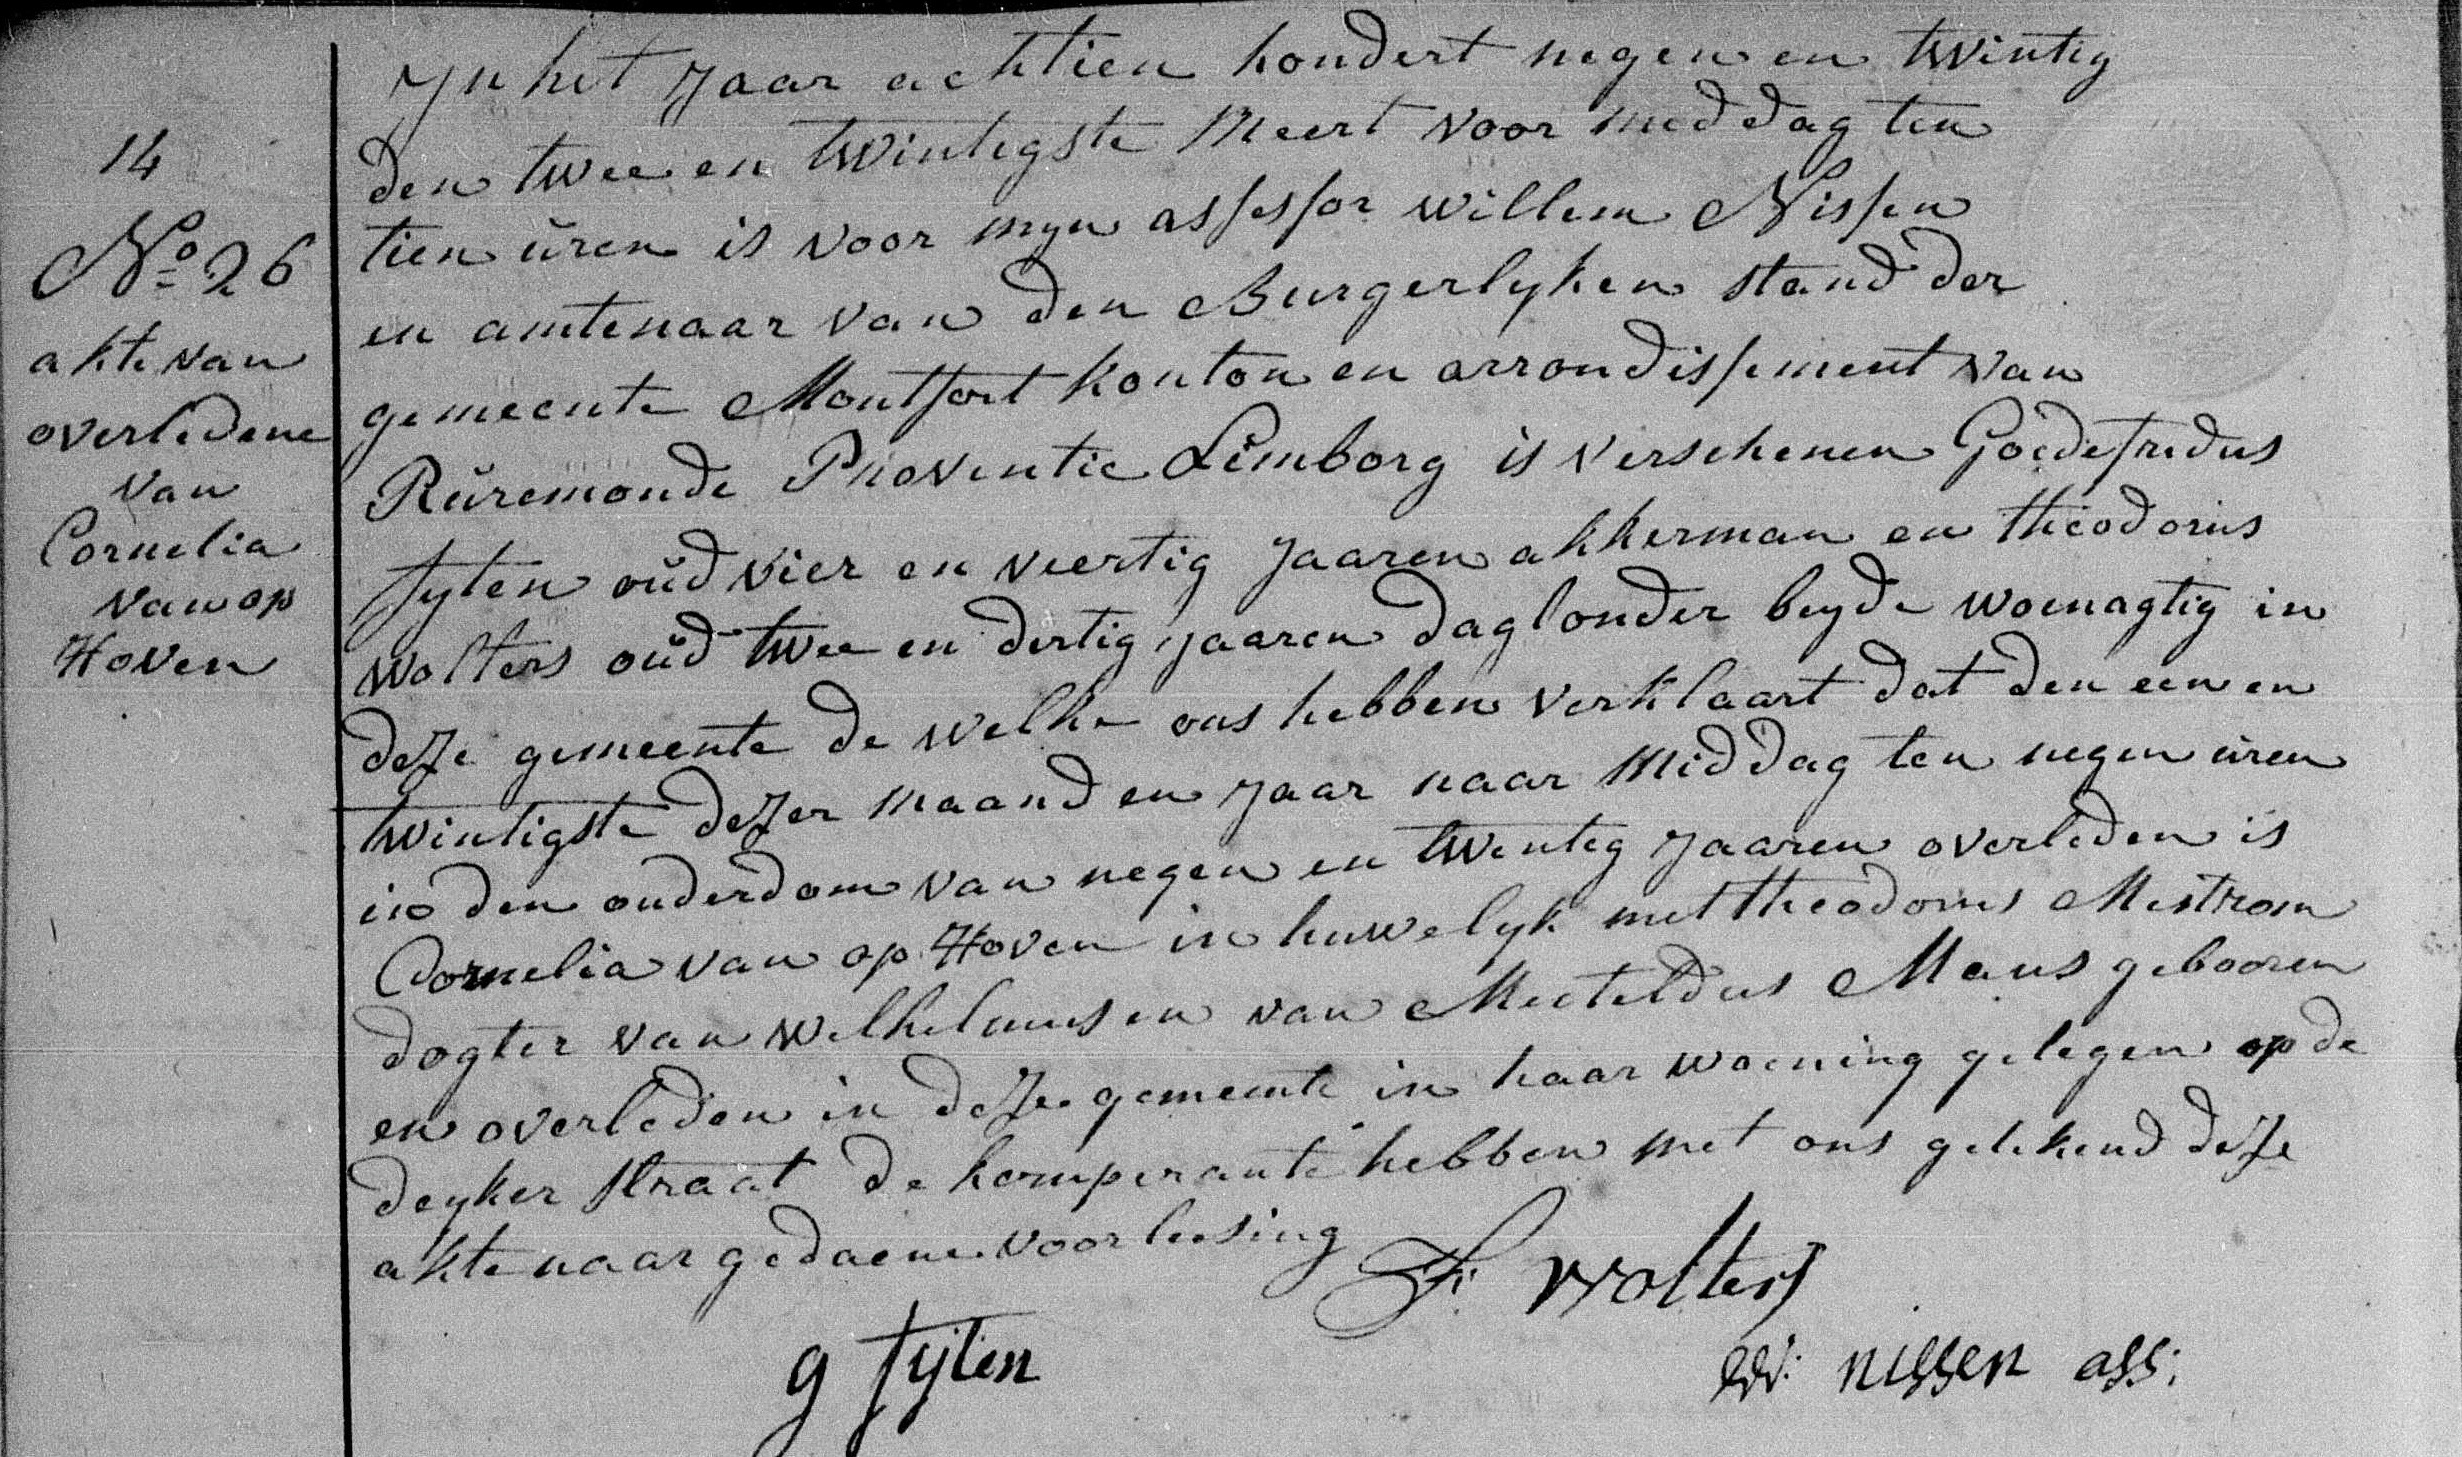 14
No 26
akte van
overledene
van
Cornelia
van op
Hoven
Jn het Jaar achtien hondert negen en twintig
den twee en twintigste Meert voor middag ten
tien uren is voor myn assessor willem Nissen
en amtenaar van den Burgerlyken stand der
gemeente Montfort kanton en arrondissement van
Ruremonde Proventie Limborg is verschenen Goedefridus
fyten oud vier en veertig Jaaren akkerman en theodorus
wolters oud twee en dertig jaaren daglonder beyde woenagtig in
deze gemeente de welke ons hebben verklaart dat den een en
twintigste dezer maand en Jaar naar middag ten negen uren
in den ouderdom van negen en twentig Jaaren overleden is
Cornelia van op Hoven in huwelyk met theodorus Mestrom
dogter van Wilhelmus en van Mecteldus Maus gebooren
en overleden in deze gemeente in haar woening gelegen op de
deyker straat de komperante hebben met ons getekend deze
akte naar gedaene voorleesing
wolters
g fyten
W: nissen ass: